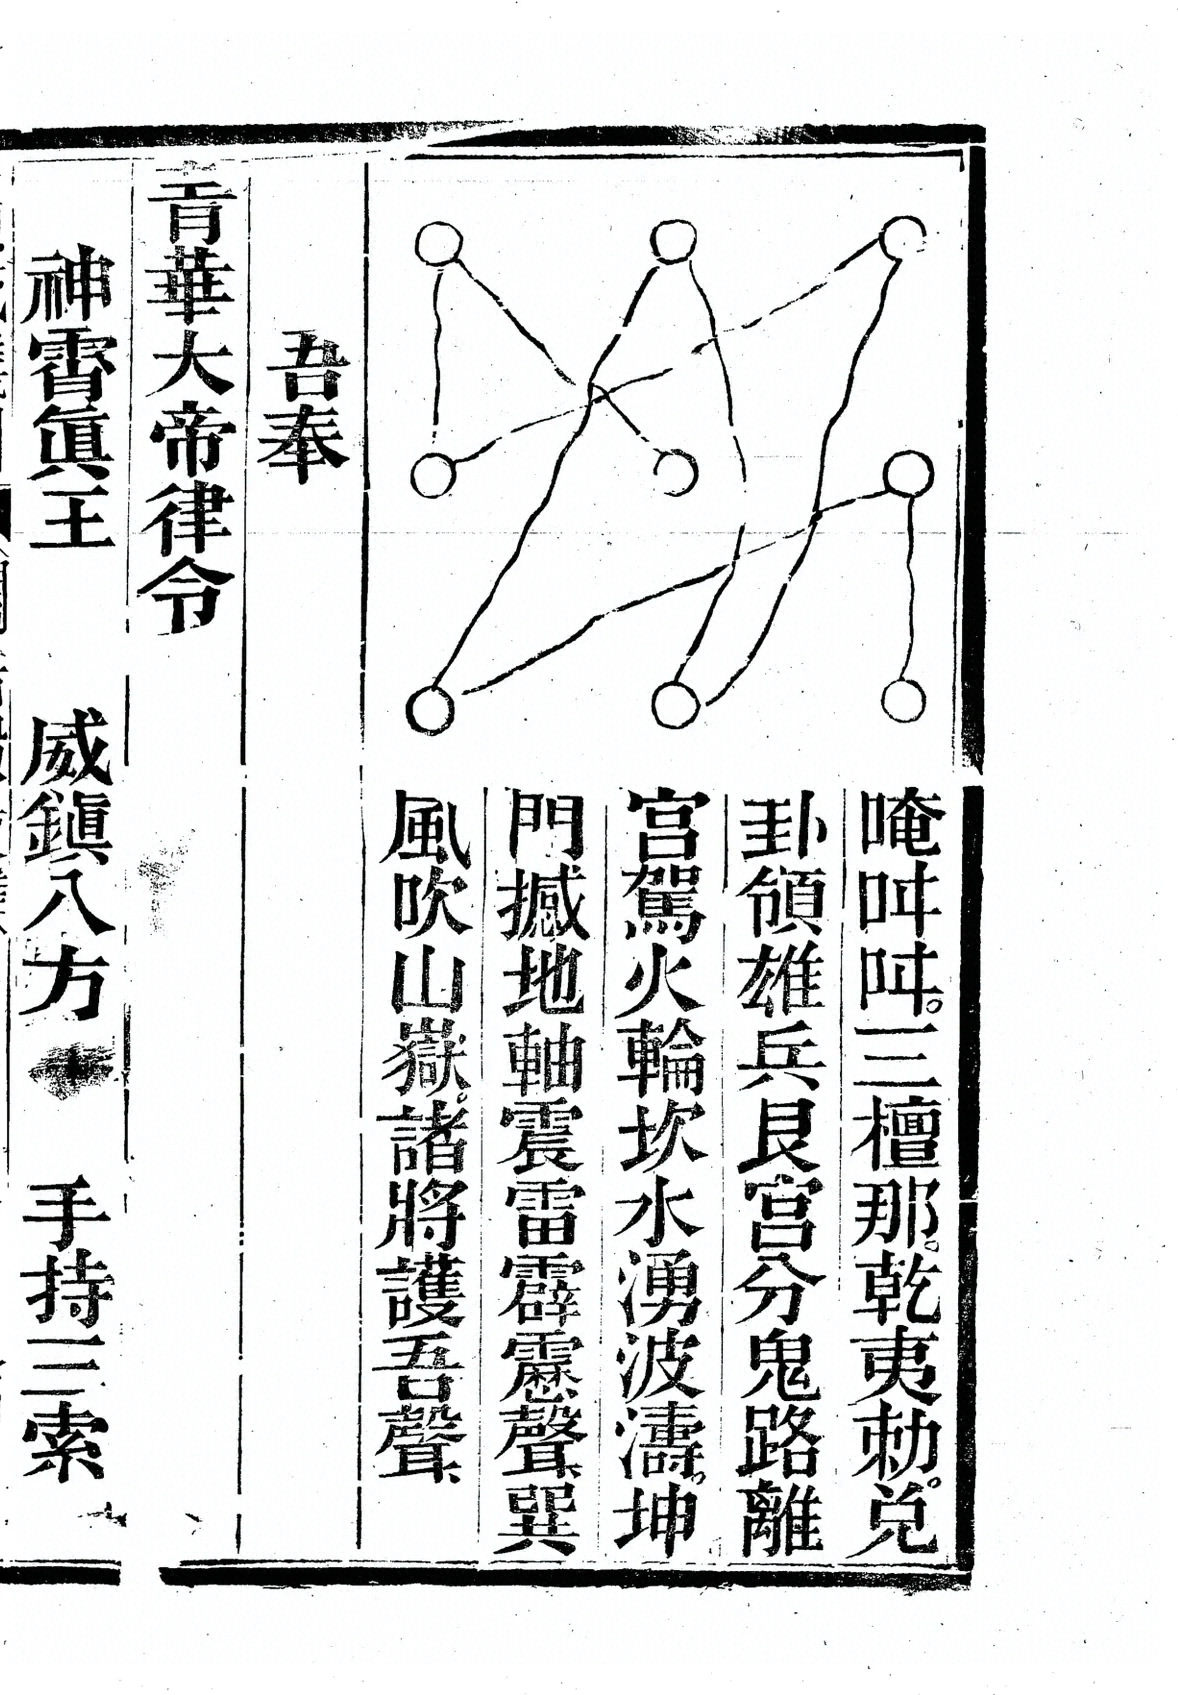 唵吽吽。三檀那。乾夷勑。兌
卦領雄兵艮宮分鬼路離
宮駕火輪坎水湧波濤。坤
門撼地軸震雷霹靂聲、巽
風吹山嶽。諸將護吾聲、
吾奉
青華大帝律令
神霄眞王 威鎭八方 手持三索